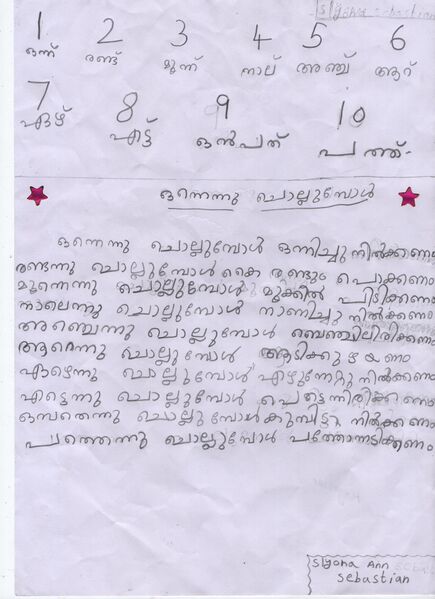 Slyona Sebastian
1 2 3 4 5 6
ഒന്ന് രണ്ട് മൂന്ന് നാല് അഞ്ച് ആറ്
7 8 9 10
ഏഴ് എട്ട് ഒൻപത് പത്ത്.
ഒന്നെന്നു ചൊല്ലുമ്പോൾ
ഒന്നെന്നു ചൊല്ലുമ്പോൾ ഒന്നിച്ചു നിൽക്കണം
രണ്ടന്നു ചൊല്ലുമ്പോൾ കൈ രണ്ടും പൊക്കണം
മൂന്നെന്നു ചൊല്ലുമ്പോൾ മൂക്കിൽ പിടിക്കണം
നാലെന്നു ചൊല്ലുമ്പോൾ നാണിച്ചു നിൽക്കണം
അഞ്ചെന്നു ചൊല്ലുമ്പോൾ ബെഞ്ചിലിരിക്കണം
ആറെന്നു ചൊല്ലുമ്പോൾ ആടിക്കുഴയണം
ഏഴെന്നു ചൊല്ലുമ്പോൾ എഴുന്നേറ്റു നിൽക്കണം
എട്ടെന്നു ചൊല്ലുമ്പോൾ പെട്ടെന്നിരിക്കണം
ഒമ്പതെന്നു ചൊല്ലുമ്പോൾ കുമ്പിട്ടു നിൽക്കണം
പത്തെന്നു ചൊല്ലുമ്പോൾ പത്തോന്നടിക്കണം
Slyona Ann
Sebastian